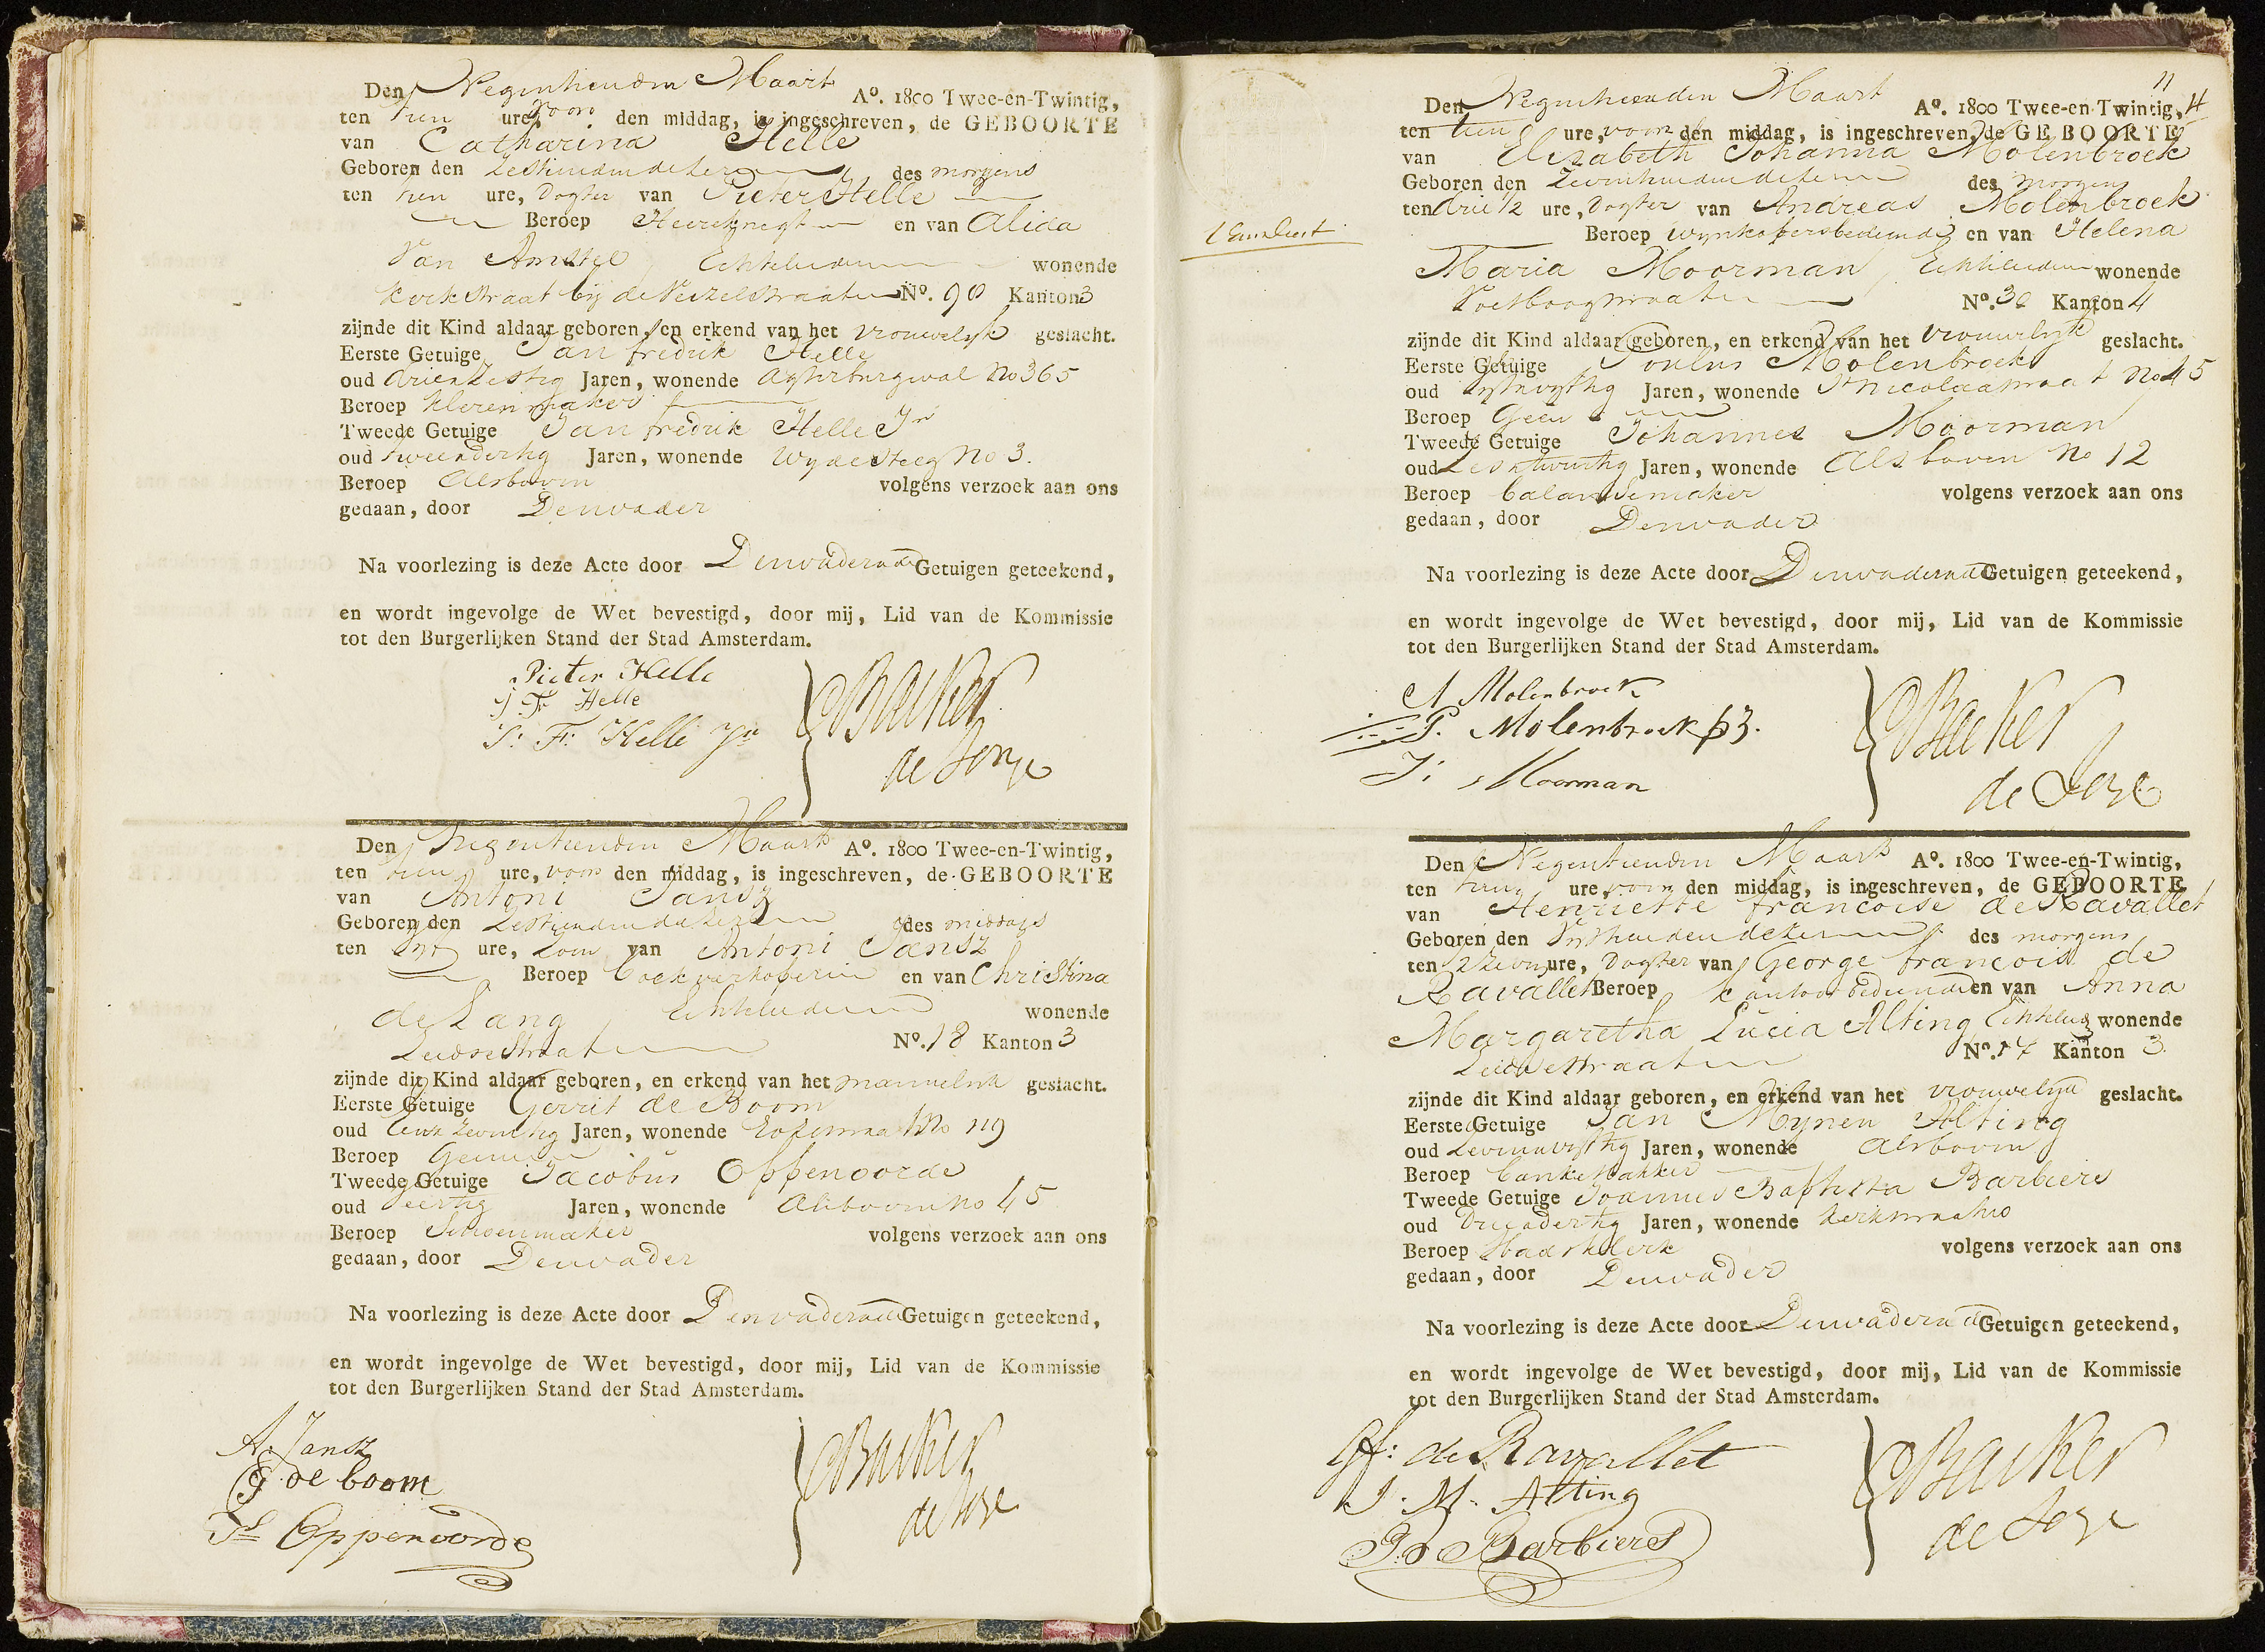 Den Negentienden Maart A⁰. 1800 Twee-en-Twintig,
ten tien ure, voor den middag, is ingeschreven, de GEBOORTE
van Catharina Helle
Geboren den Zestienden dezer des morgens
ten tien ure, Dogter van Pieter Helle
Beroep Heereknegt en van Alida
Van Amstel Echtelieden wonende
Kerkstraat bij de Vezelstraat N⁰. 90 Kanton 3
zijnde dit Kind aldaar geboren, en erkend van het vrouwelijk geslacht.
Eerste Getuige Jan fredrik Helle
oud drienzestig Jaren, wonende Agterburgwal No 365
Beroep Klerenmaker
Tweede Getuige Jan fredrik Helle Jr
oud tweendertig Jaren, wonende Wydesteeg No 3.
Beroep Alsboven volgens verzoek aan ons
gedaan, door Denvader
Na voorlezing is deze Acte door Denvader en de Getuigen geteekend,
en wordt ingevolge de Wet bevestigd, door mij, Lid van de Kommissie
tot den Burgerlijken Stand der Stad Amsterdam.
Pieter Helle
J F Helle
J: F: Helle Jr
Backer
de Jonge
Den Negentienden Maart A⁰. 1800 Twee-en-Twintig,
ten tien ure, voor den middag, is ingeschreven, de GEBOORTE
van Antoni Jansz
Geboren den Zestienden dezer des middags
ten ure, Zoon van Antoni Jansz
Beroep Koekverkoper en van Christina
de Lang Echtelieden wonende
Leidsestraat N⁰. 18 Kanton 3
zijnde dit Kind aldaar geboren, en erkend van het mannelijk geslacht.
Eerste Getuige Gerrit de Boom
oud eenzeventig Jaren, wonende No 119
Beroep Geen
Tweede Getuige Jacobus Oppenoorde
oud veertig Jaren, wonende Alsboven No 45
Beroep Schoenmaker volgens verzoek aan ons
gedaan, door Denvader
Na voorlezing is deze Acte door Denvader en de Getuigen geteekend,
en wordt ingevolge de Wet bevestigd, door mij, Lid van de Kommissie
tot den Burgerlijken Stand der Stad Amsterdam.
A. Jansz
G de boom
Js Oppenoorde
Backer
de Jonge
11
Den Negentienden Maart A⁰. 1800 Twee-en-Twintig,
ten tien ure, voor den middag, is ingeschreven, de GEBOORTE
van Elizabeth Johanna Molenbroek
Geboren den Zeventienden dezer des morgens
ten drie 1/2 ure, Dogter van Andreas Molenbroek
Beroep Wynkopersbediende en van Helena
Maria Moorman Echtelieden wonende
Voetboogstraat N⁰. 30 Kanton 4
zijnde dit Kind aldaar geboren, en erkend van het vrouwelijk geslacht.
Eerste Getuige Poulus Molenbroek
oud vijfenvyftig Jaren, wonende St Nicolaastraat No 45
Beroep Geen
Tweede Getuige Johannes Moorman
oud Zesentwintig Jaren, wonende Alsboven No 12
Beroep balansemaker volgens verzoek aan ons
gedaan, door Denvader
Na voorlezing is deze Acte door Denvader en de Getuigen geteekend,
en wordt ingevolge de Wet bevestigd, door mij, Lid van de Kommissie
tot den Burgerlijken Stand der Stad Amsterdam.
A Molenbroek
P. Molenbroek
J: Moorman
Backer
de Jonge
Den Negentienden Maart A⁰. 1800 Twee-en-Twintig,
ten tien ure, voor den middag, is ingeschreven, de GEBOORTE
van Henriette francoise de Ravallet
Geboren den Vyfthienden dezer des morgens
ten 1/2 Zeven ure, Dogter van George francois de
Ravallet Beroep Kantoorbediende en van Anna
Margaretha Lucia Alting Echtelied wonende
Leidsestraat N⁰. 17 Kanton 3
zijnde dit Kind aldaar geboren, en erkend van het vrouwelyk geslacht.
Eerste Getuige Jan Mynen Alting
oud Zevenenvyftig Jaren, wonende Alsboven
Beroep Banketbakker
Tweede Getuige Joannes Baptista Barbiers
oud Drieendertig Jaren, wonende Kerkstraat
Beroep Stadsklerk volgens verzoek aan ons
gedaan, door Denvader
Na voorlezing is deze Acte door Denvader en de Getuigen geteekend,
en wordt ingevolge de Wet bevestigd, door mij, Lid van de Kommissie
tot den Burgerlijken Stand der Stad Amsterdam.
Gf: de Ravallet
J. M. Alting
J. B Barbiers
Backer
de Jonge